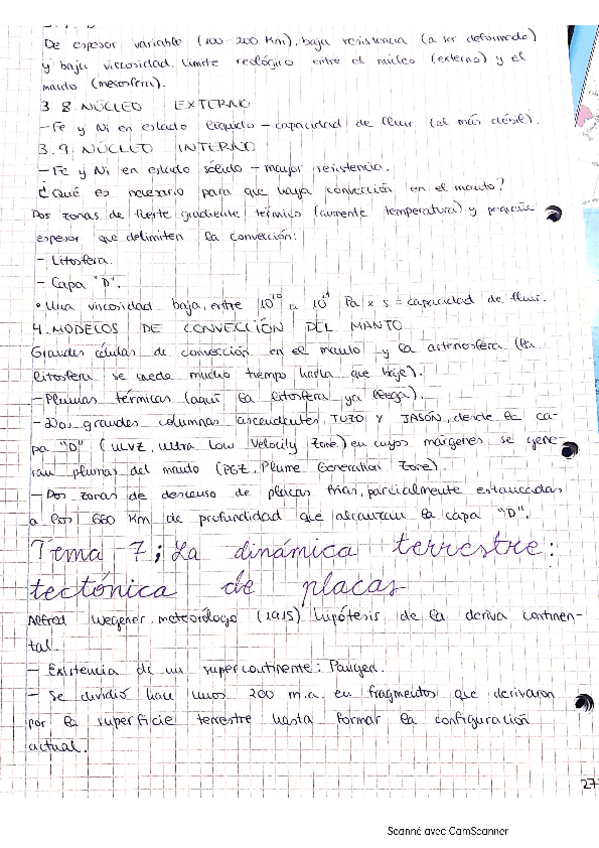 De espesor variable (100-200 Km), baja resistencia (a ser deformada)
y baja viscosidad. Límite reológico entre el núcleo (externo) y el
manto (mesosfera).
3.8. NÚCLEO EXTERNO
- Fe y Ni en estado líquido - capacidad de fluir (al más débil).
3.9. NÚCLEO INTERNO
- Fe y Ni en estado sólido - mayor resistencia.
¿Qué es necesario para que haya convección en el manto?
Dos zonas de fuerte gradiente térmico (aumente temperatura) y pequeño
espesor que delimiten la convección:
- Litosfera.
- Capa "D".
• Una viscosidad baja, entre 10 a 10 Pa x s = capacidad de fluir.
4. MODELOS DE CONVECCIÓN DEL MANTO
Grandes células de convección en el manto y la astenosfera (la
litosfera se queda mucho tiempo hasta que baje).
- Plumas térmicas (aquí la litosfera ya llega).
- Dos grandes columnas ascendentes, TUZO Y JASON, desde la ca-
pa "D" (ULVZ, Ultra Low Velocity Zone) en cuyos márgenes se gene-
ran plumas del manto (PGZ, Plume Generation Zone).
- Dos zonas de descenso de placas frías, parcialmente estancadas
a los 660 Km de profundidad que alcanzan la capa "D".
Tema 7; La dinámica terrestre:
tectónica de placas
Alfred Wegener, meteorólogo (1915) hipótesis de la deriva continen-
tal.
- Existencia de un supercontinente: Pangea.
- Se dividió hace unos 200 m.a. en fragmentos que derivaron
por la superficie terrestre hasta formar la configuración
actual.
27
Scanné avec CamScanner